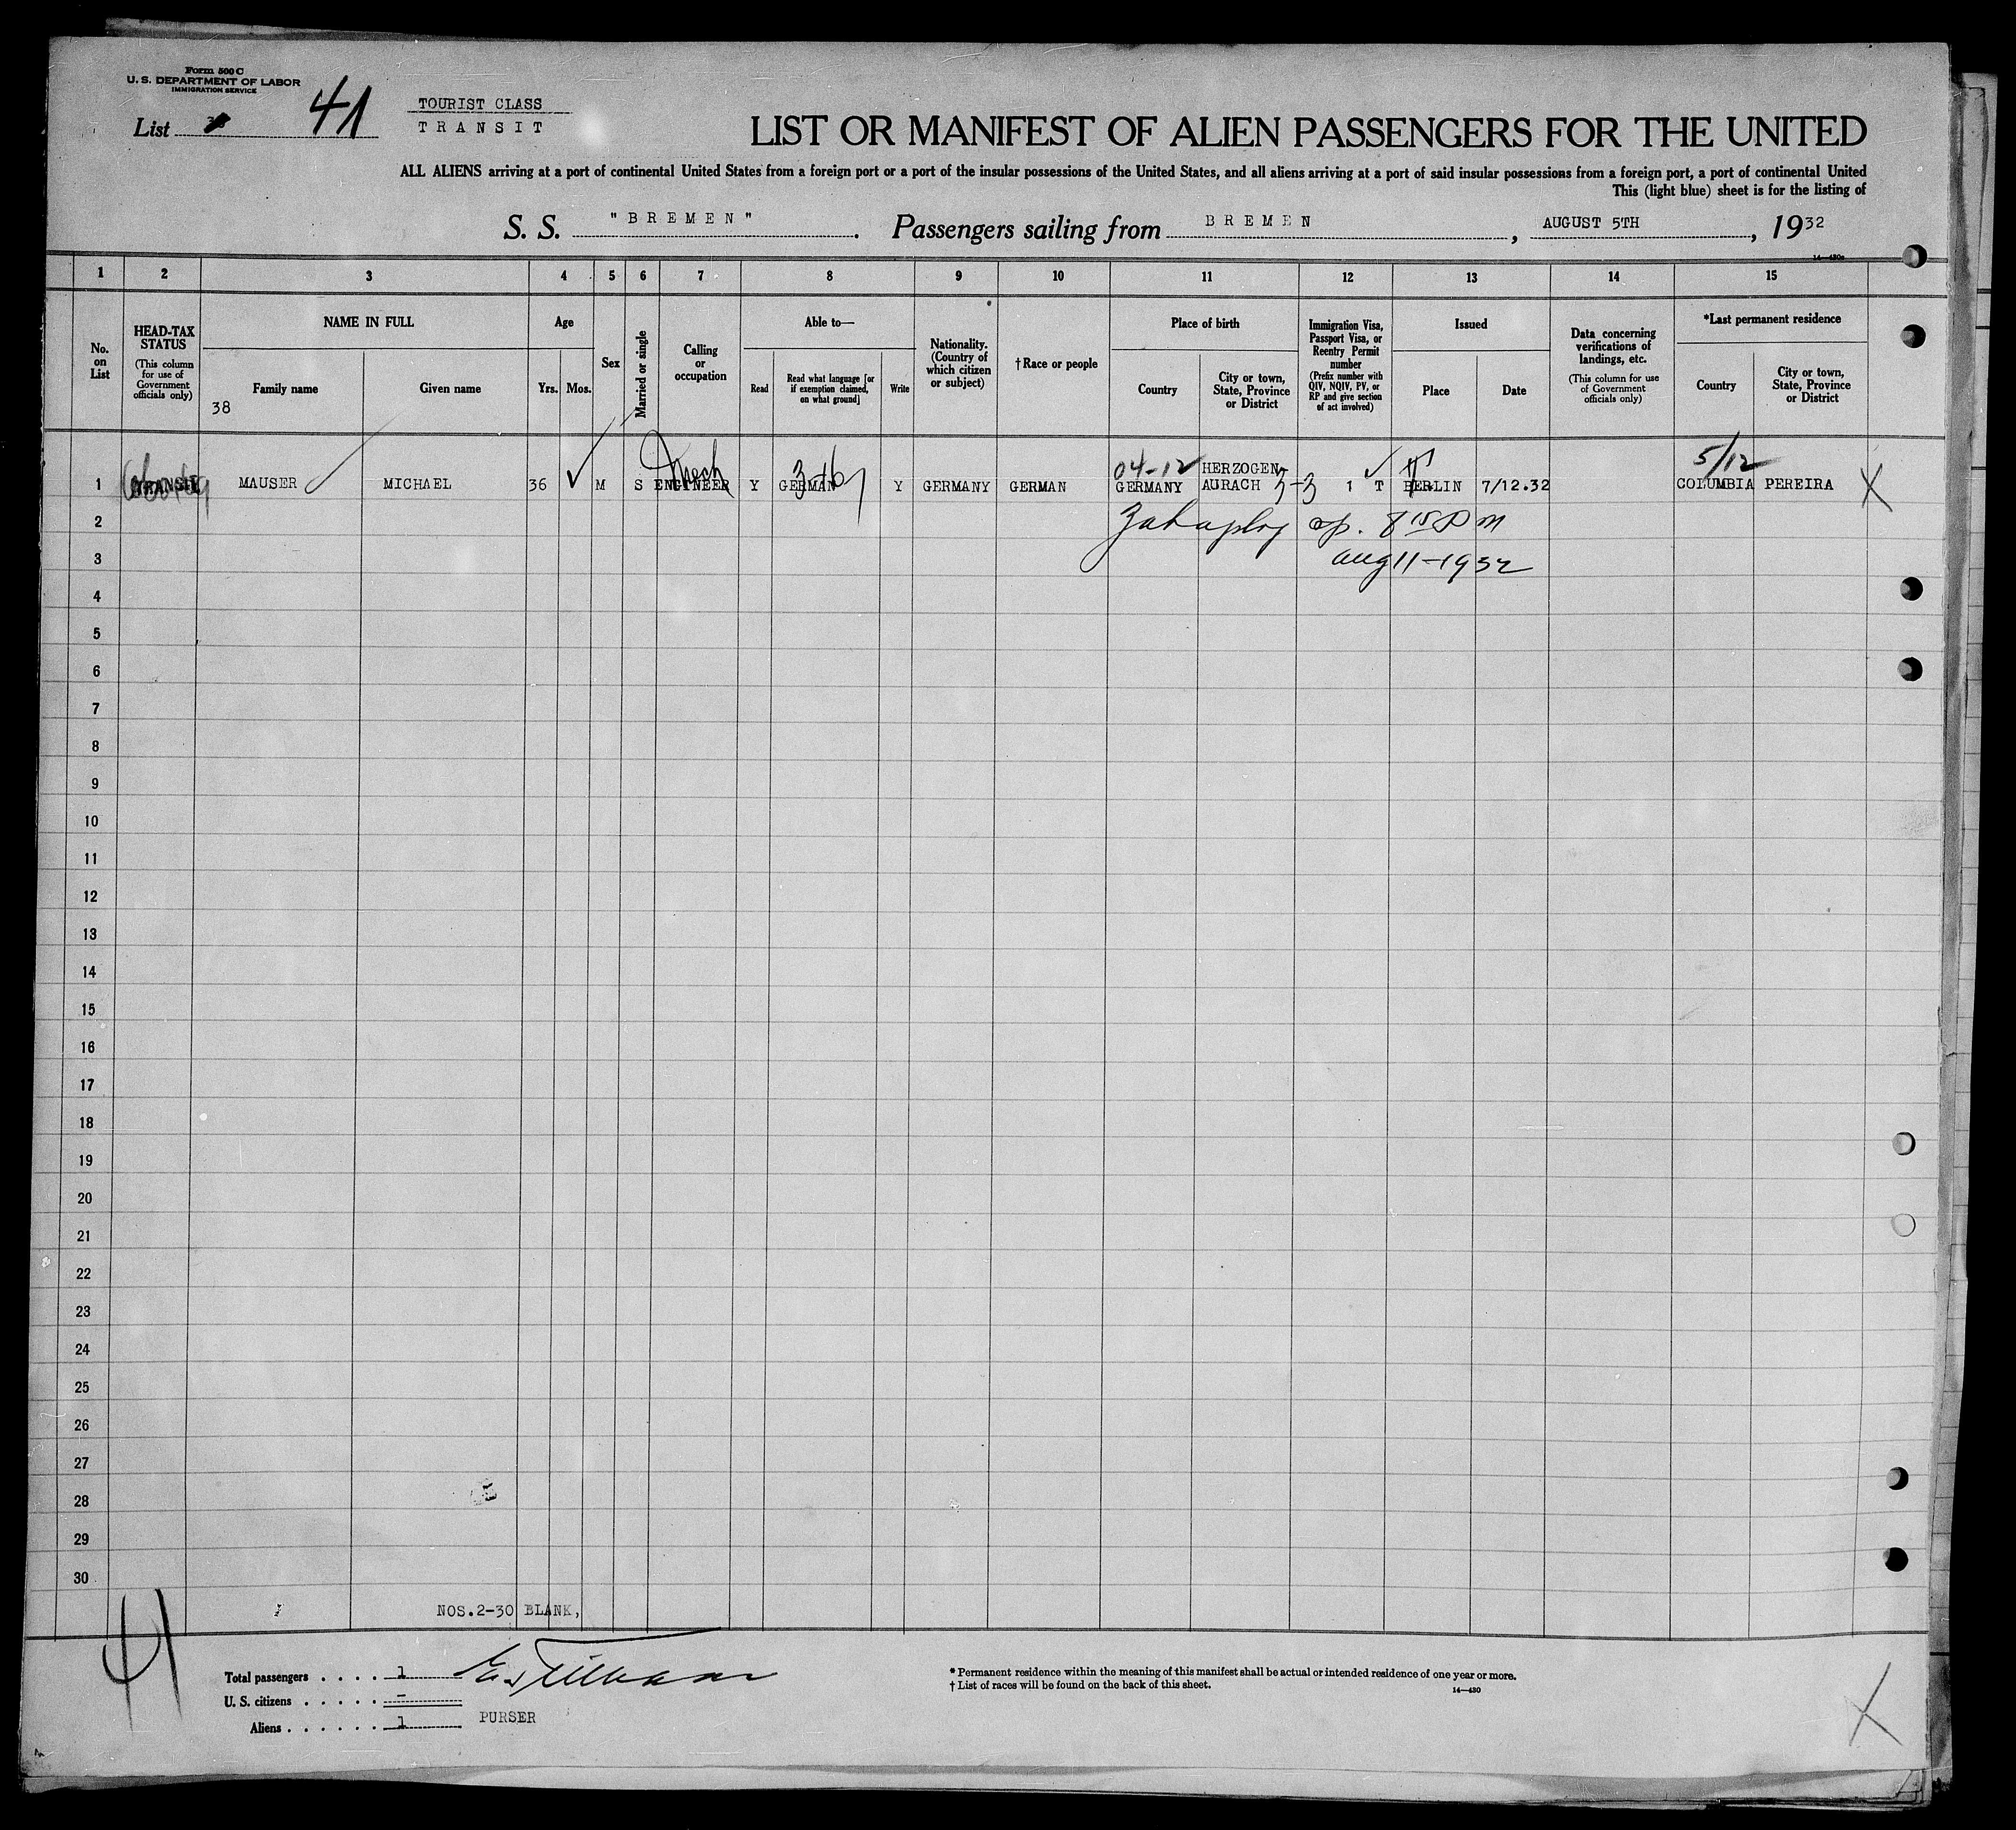 Form 500 C
U. S. DEPARTMENT OF LABOR
IMMIGRATION SERVICE
List 41
TOURIST CLASS
TRANSIT
LIST OR MANIFEST OF ALIEN PASSENGERS FOR THE UNITED
ALL ALIENS arriving at a port of continental United States from a foreign port or a port of the insular possessions of the United States, and all aliens arriving at a port of said insular possessions from a foreign port, a port of continental United
This (light blue) sheet is for the listing of
S. S. "BREMEN". Passengers sailing from BREMEN, AUGUST 5TH, 1932
14—430a
1 2 3 4 5 6 7 8 9 10 11 12 13 14 15
No. on List
HEAD-TAX STATUS
(This column for use of Government officials only)
NAME IN FULL
Family name
Given name
38
Age
Yrs.
Mos.
Sex
Married or single
Calling or occupation
Able to—
Read
Read what language [or if exemption claimed, on what ground]
Write
Nationality. (Country of which citizen or subject)
†Race or people
Place of birth
Country
City or town, State, Province or District
Immigration Visa, Passport Visa, or Reentry Permit number
(Prefix number with QIV, NQIV, PV, or RP and give section of act involved)
Issued
Place
Date
Data concerning verifications of landings, etc.
(This column for use of Government officials only)
*Last permanent residence
Country
City or town, State, Province or District
04-12 5/12
HERZOGEN-
1 TRANSIT MAUSER MICHAEL 36 M S ENGINEER Y GERMAN Y GERMANY GERMAN GERMANY AURACH 3-3 1 T BERLIN 7/12.32 COLUMBIA PEREIRA X
2 8 15 P M
3 Aug 11-1932
4
5
6
7
8
9
10
11
12
13
14
15
16
17
18
19
20
21
22
23
24
25
26
27
28
29
30
NOS.2-30 BLANK,
41
Total passengers . . . . 1
U. S. citizens . . . . . —
Aliens . . . . . . 1
PURSER
* Permanent residence within the meaning of this manifest shall be actual or intended residence of one year or more.
† List of races will be found on the back of this sheet.
14—430
X